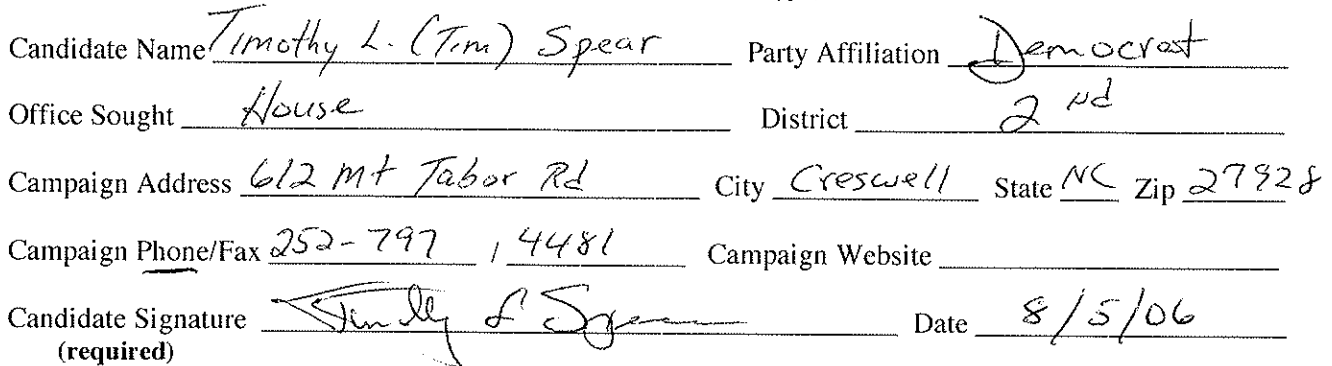 Candidate Name Timothy L. (Tim) Spear Party Affiliation Democrat
Office Sought House District 2 nd
Campaign Address 612 Mt Tabor Rd City Creswell State NC Zip 27928
Campaign Phone/Fax 252-797 / 4481 Campaign Website
Candidate Signature Timothy L Spear Date 8/5/06
(required)